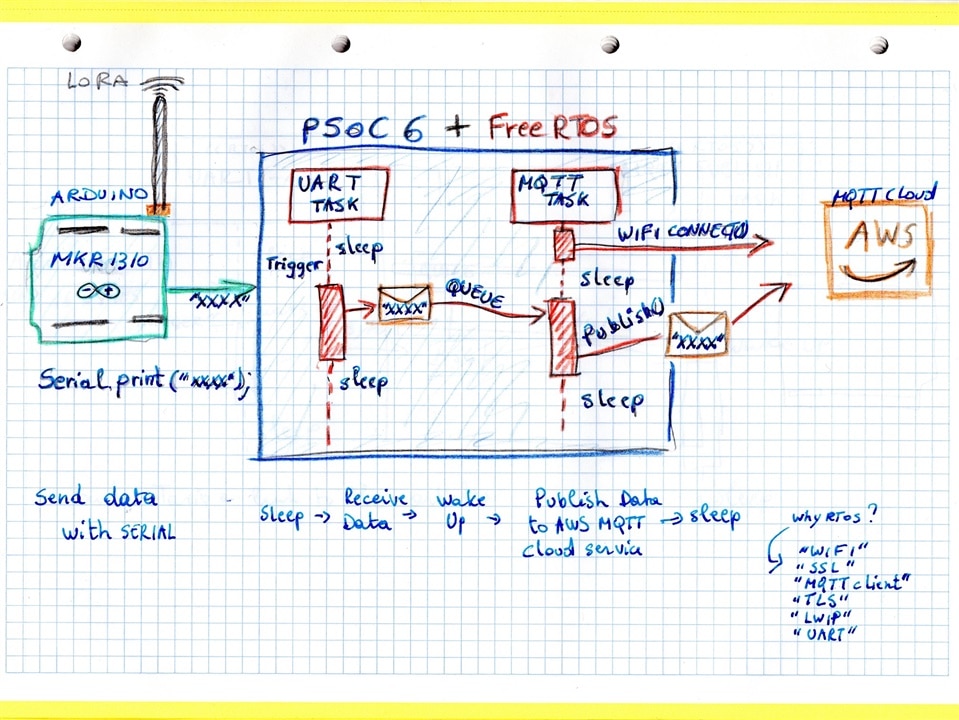 LORA
PSoC 6 + FreeRTOS
ARDUINO
MKR 1310
"XXXX"
Serial.print("XXXX");
UART
TASK
sleep
Trigger
"XXXX"
QUEUE
sleep
MQTT
TASK
WIFI CONNECT()
sleep
Publish()
"XXXX"
sleep
MQTT Cloud
AWS
Send data
with SERIAL
Sleep → Receive
Data → Wake
Up → Publish Data
to AWS MQTT
cloud service → sleep
Why RTOS?
"WIFI"
"SSL"
"MQTT client"
"TLS"
"LWIP"
"UART"